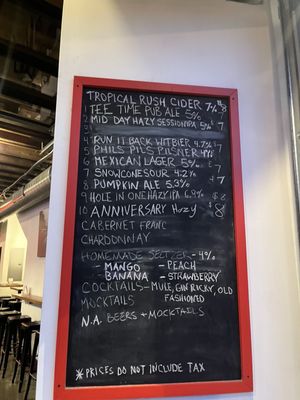 TROPICAL RUSH CIDER 7% $8
1 TEE TIME PUB ALE 5%
2 MID DAY HAZY SESSION IPA 5% $ 7
3
4 RUN IT BACK WITBIER 4.7% $ 7
5 PHILS PILS PILSNER
6 MEXICAN LAGER 5% $ 7
7 SNOWCONE SOUR 4.2% $ 7
8 PUMPKIN ALE 5.3%
9 HOLE IN ONE HAZY IPA 6.9% $ 8
10 ANNIVERSARY Hazy $ 8
CABERNET FRANC
CHARDONNAY
HOMEMADE SELTZER - 4%
- MANGO - PEACH
BANANA - STRAWBERRY
COCKTAILS - MULE, GIN RICKY, OLD
FASHIONED
MOCKTAILS
N.A. BEERS - MOCKTAILS
* PRICES DO NOT INCLUDE TAX